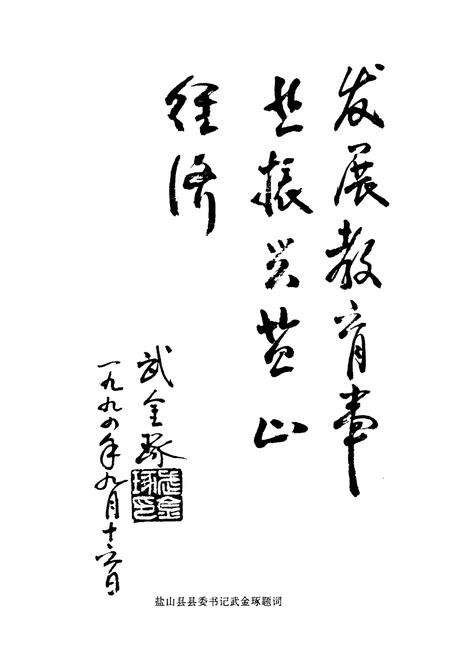 发展教育事
业振兴盐山
经济
武金琢
一九九四年九月十六日
武金琢印
盐山县县委书记武金琢题词